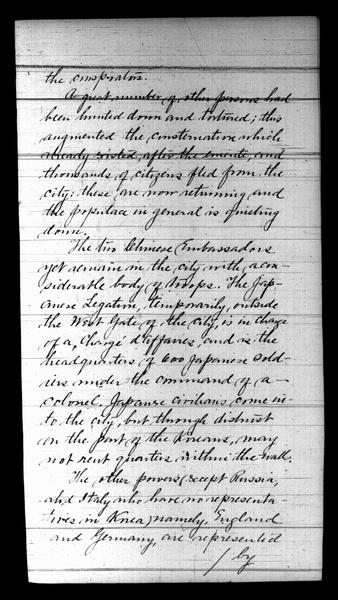 the conspirators.
A great number of other persons had
been hunted down and tortured; this
augmented the consternation which
already existed, after the emeute, and
thousands of citizens fled from the
city: these are now returning and
the populace in general is quieting
down.
The two Chinese Embassadors
yet remain in the city with a con-
siderable body of troops. The Jap-
anese Legation, temporarily, outside
the West Gate of the city, is in charge
of a, Chargé d'affaires, and is the
headquarters of 600 Japanese sold-
iers under the command of a
colonel. Japanese civilians come in-
to the city, but through distrust
on the part of the Koreans, may
not rent quarters within the wall.
The other powers, except Russia,
and Italy who have no representa-
tives in Korea; namely, England
and Germany, are represented
/ by